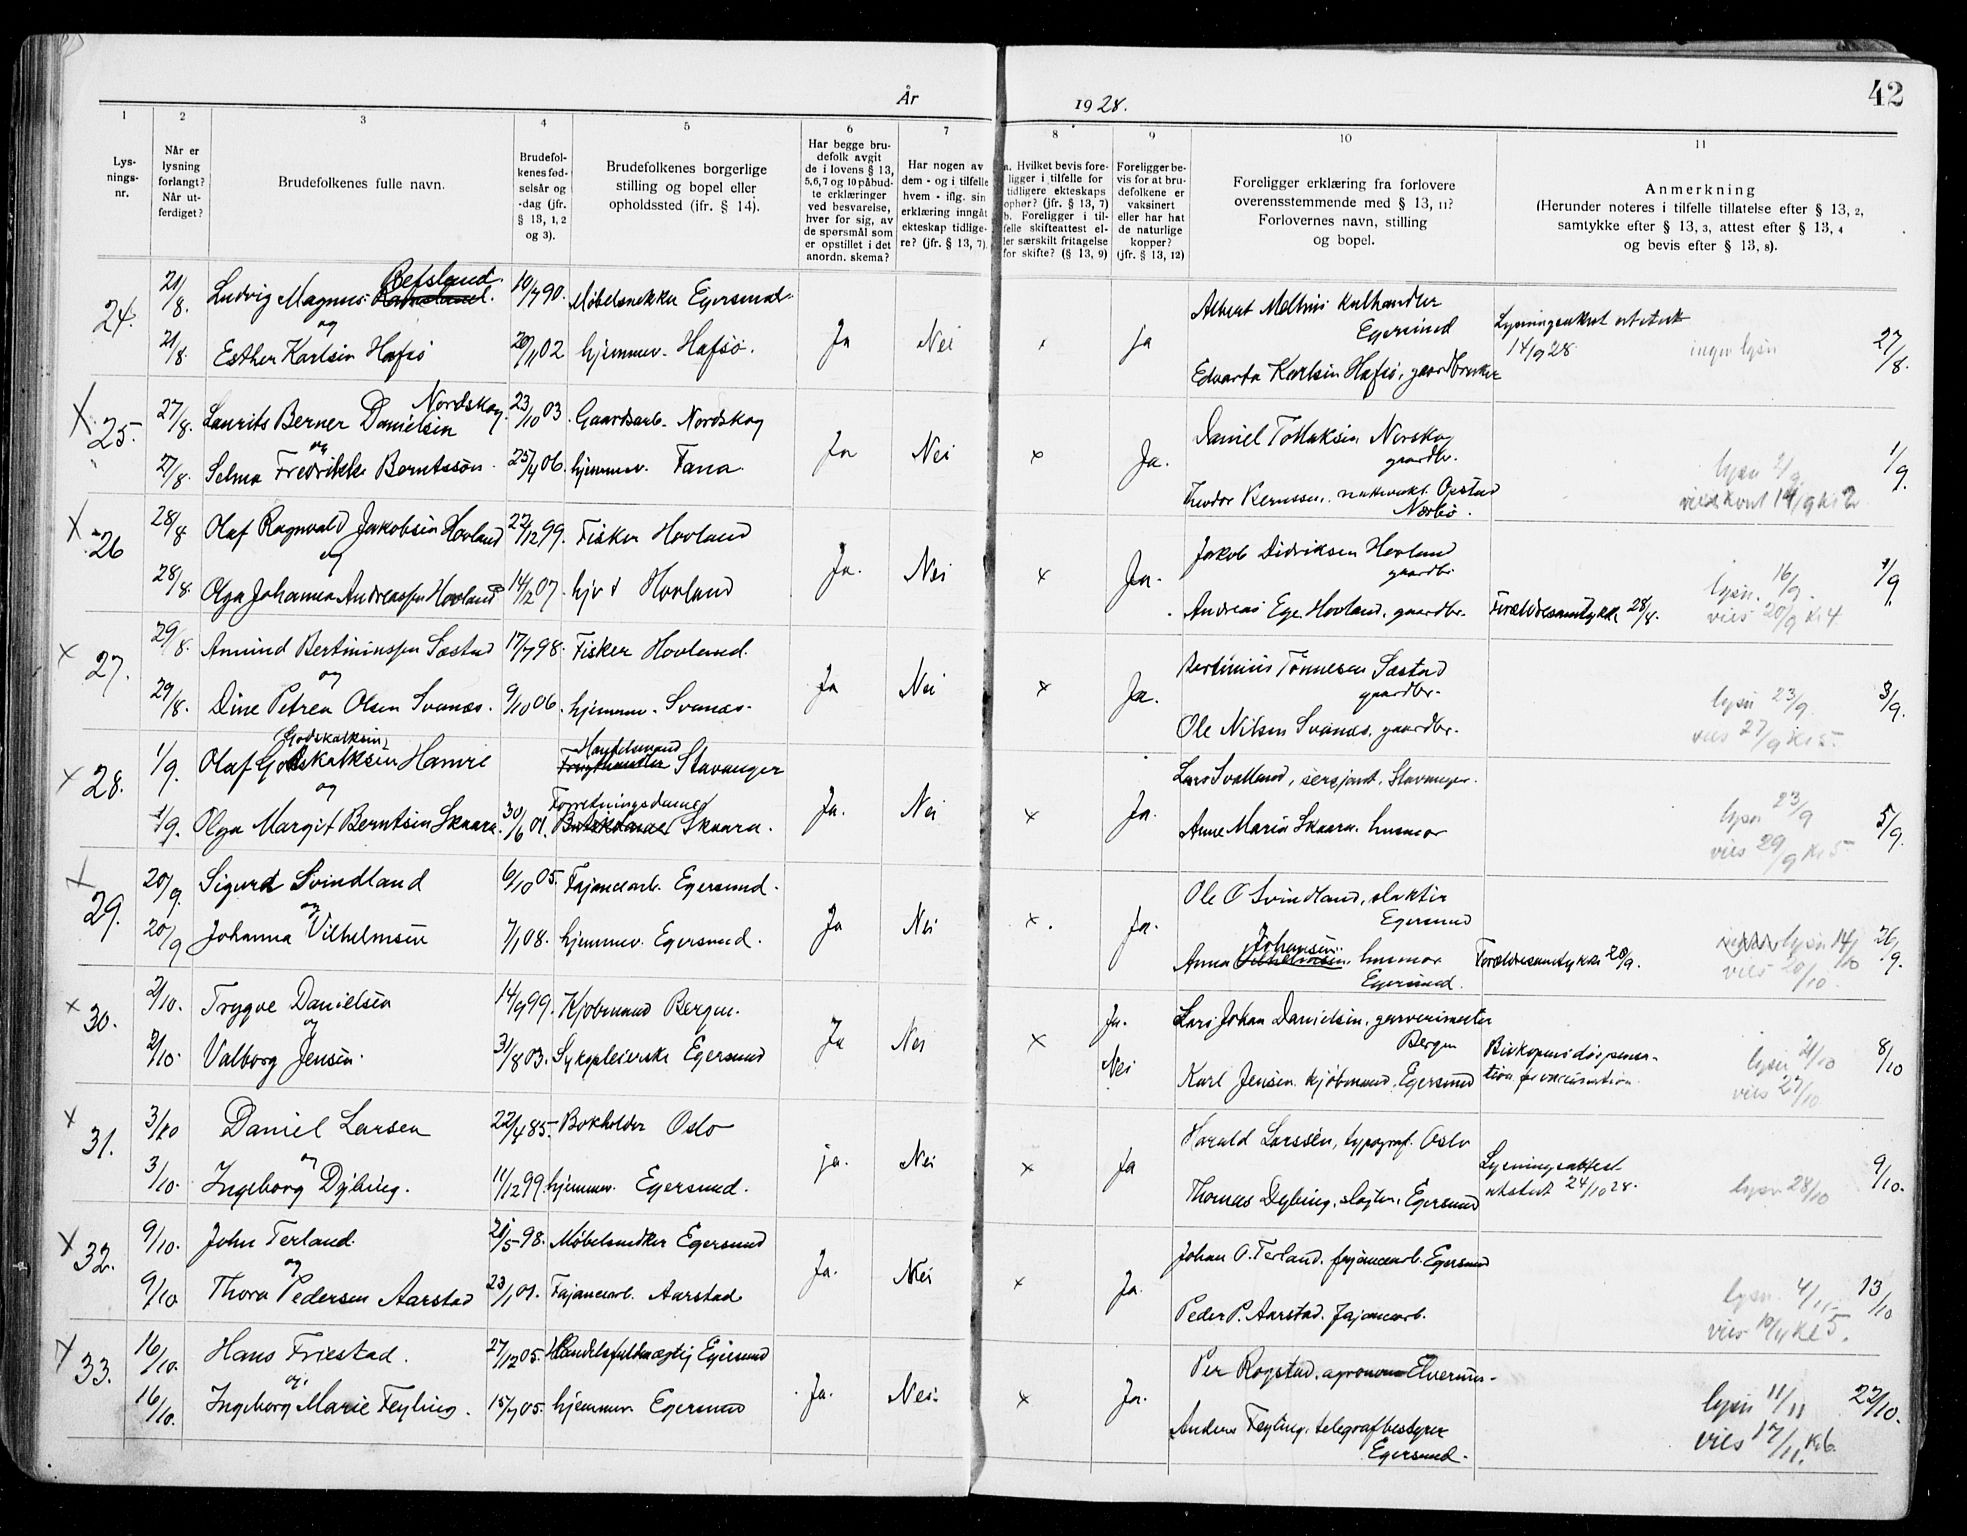 42
År 1928.
1 2 3 4 5 6 7 8 9 10 11
Lysnings-nr.
Når er lysning forlangt? Når utferdiget?
Brudefolkenes fulle navn.
Brudefolkenes fødselsår og -dag (jfr. § 13, 1, 2 og 3).
Brudefolkenes borgerlige stilling og bopel eller opholdssted (ifr. § 14).
Har begge brudefolk avgit de i lovens § 13, 5,6,7 og 10 påbudte erklæringer ved besvarelse, hver for sig, av de spørsmål som er opstillet i det anordn. skema?
Har nogen av dem - og i tilfelle hvem - iflg. sin erklæring inngåt ekteskap tidligere? (jfr. § 13, 7).
a. Hvilket bevis foreligger i tilfelle for tidligere ekteskaps ophør? (jfr. § 13, 7)
b. Foreligger i tilfelle skifteattest eller særskilt fritagelse for skifte? (§ 13, 9)
Foreligger bevis for at brudefolkene er vaksinert eller har hat de naturlige kopper? (jfr. § 13, 12)
Foreligger erklæring fra forlovere overensstemmende med § 13, 11? Forlovernes navn, stilling og bopel.
Anmerkning
(Herunder noteres i tilfelle tillatelse efter § 13, 2, samtykke efter § 13, 3, attest efter § 13, 4 og bevis efter § 13, 8).
24. 21/8. Ludvig Magnus Refsland 10/7 90. Møbelsnekker Egersund.
og
21/8. Esther Karlsen Hafsø 20/11 02 hjemmev. Hafsø. Ja Nei x ja
Albert Meltnis kulhandler Egersund
Edvarta Karlsen Hafsø, gaardbruker
14/9 28. ingen lysn 27/8.
X 25. 27/8. Laurits Berner Danielsen Nordskog. 23/10 03. Gaardsarb. Nordskog
og
27/8. Selma Fredrikke Berntssøn. 25/4 06. hjemmev. Tana. Ja Nei x Ja.
Daniel Norskog gaardbr.
Teodor Opstad Nærbø.
lysn 2/9. 1/9.
14/9 kl 2
X 26 28/8 Olaf Ragnvald Jakobsen Hovland 22/12 99. Fisker Hovland
og
28/8. Olga Johanna Andreassen Hovland 14/2 07. hjv. Hovland Ja. Nei x Ja.
Jakob Didriksen Hovland gaardbr.
Andreas Ege Hovland, gaardbr. Forældresamtykke 28/8.
lysn. 16/9.
vies 20/9 kl 4 1/9.
x 27. 29/8. Amund Bertiniussen Sæstad 17/7 98. Fisker Hovland.
og
29/8. Dine Petrea Olsen Svanes. 9/10 06. hjemmev. Svanes. Ja Nei x Ja.
Bertinius Tønnesen Sæstad gaardbr.
Ole Nilsen Svanes, gaardbr.
lysn 23/9
vies 27/9 kl 5. 3/9.
x 28. 1/9. Olaf Godskalksen Hamre Godskalksen Handelsmand Stavanger
og
1/9. Olga Margit Berntsen Skaara. 30/6 01. Forretningsdame Skaara. Ja. Nei x Ja.
Lars Svalland, sersjant. Stavanger.
Anne Maria Skaara. husmor
lysn 23/9
vies 29/9 kl 5. 5/9.
x 29. 20/9. Sigurd Svindland 6/10 05. Fajancearb. Egersund.
og
20/9 Johanna Vilhelmsen 7/1 08. hjemmev. Egersund. Ja Nei x. Ja.
Ole O Svindland, slakter Egersund
Anna Johansen. husmor Egersund. Forældresamtykke 20/9.
lysn 14/10
vies 20/10. 26/9.
x 30. 2/10. Trygve Danielsen 14/9 99. Kjøbmand Bergen.
og
2/10. Valborg Jensen. 31/8 03. Sykepleierske Egersund Ja Nei x Ja. Nei
Lars Johan Danielsen. garverimester Bergen
Karl Jensen. kjøbmand. Egersund Biskopens dispensation for vaccination.
lysn 21/10
vies 27/10. 8/10
x 31. 3/10 Daniel Larsen 22/4 85. Bokholder Oslo
og
3/10. Ingeborg Dybing. 11/12 99. hjemmev. Egersund. ja. Nei x Ja
Harald Larssen, typograf. Oslo
Thomas Dybing. Egersund Lysningsattest utstedt 24/10 28.
lysn 28/10 9/10.
x 32. 9/10. John Terland. 28/5 98. Møbelsnekker Egersund
og
9/10 Thora Pedersen Aarstad 23/1 01. Fajancearb. Aarstad Ja. Nei x Ja.
Johan O. Terland. fajancearb. Egersund
Peder P. Aarstad. Fajancearb.
lysn. 4/11.
vies 10/11 kl 5. 13/10
x 33. 16/10. Hans Friestad. 27/12 05. Handelsfuldmægtig Egersund
og.
16/10. Ingeborg Marie Feyling. 15/7 05. hjemmev Egersund Ja. Nei. x Ja.
Per Rogstad. agronom Elverum.
Anders Feyling. telegrafbestyrer Egersund.
lysn 11/11
vies 17/11. kl 6. 22/10.